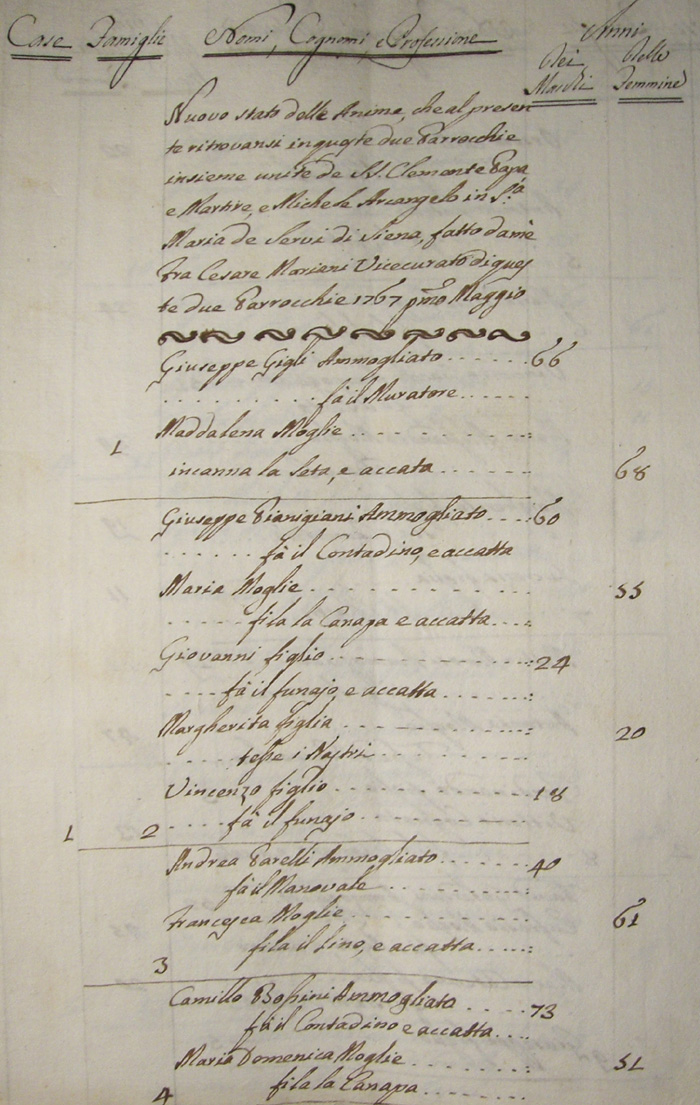 Case Famiglie Nomi, Cognomi, e Professione Anni
Dei Maschi Delle Femmine
Nuovo stato delle Anime, che al presen
te ritrovansi in queste due Parrocchie
insieme unite de SS. Clemente Papa,
e Martire, e Michele Arcangelo in S.ª
Maria de Servi di Siena, fatto da me
Fra Cesare Mariani Vicecurato di ques
te due Parrocchie 1767 pmo Maggio
Giuseppe Gigli Ammogliato ...... 66
......... fà il Muratore .....
Maddalena Moglie ..........
1
incanna la Seta, e accata ...... 68
Giuseppe Pianigiani Ammogliato .... 60
...... fà il Contadino, e accatta
Maria Moglie ............ 55
..... fila la Canapa e accatta....
Giovanni figlio ........... 24
.... fà il funajo, e accatta ......
Margherita figlia .......... 20
..... tesse i Nastri ..........
Vincenzo figlio .......... 18
1 2 .... fà il funajo .........
Andrea Parelli Ammogliato ...... 40
fà il Manovale .........
Francesca Moglie .......... 61
fila il lino, e accatta .....
3
Camillo Bossini Ammogliato ..... 73
fà il Contadino e accatta ...
Maria Domenica Moglie ....... 51
4 fila la Canapa ........